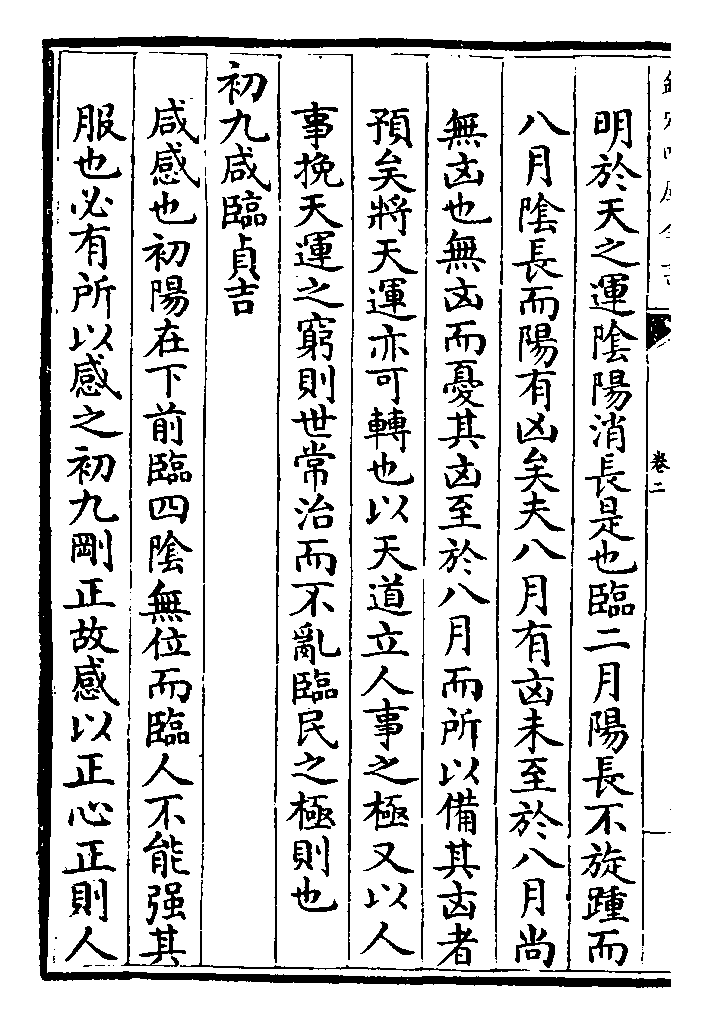 卷二
明於天之運陰陽消長是也臨二月陽長不旋踵而
八月陰長而陽有凶矣夫八月有凶未至於八月尚
無凶也無凶而憂其凶至於八月而所以備其凶者
預矣將天運亦可轉也以天道立人事之極又以人
事挽天運之窮則世常治而不亂臨民之極則也
初九咸臨貞吉
咸感也初陽在下前臨四陰無位而臨人不能强其
服也必有所以感之初九剛正故感以正心正則人